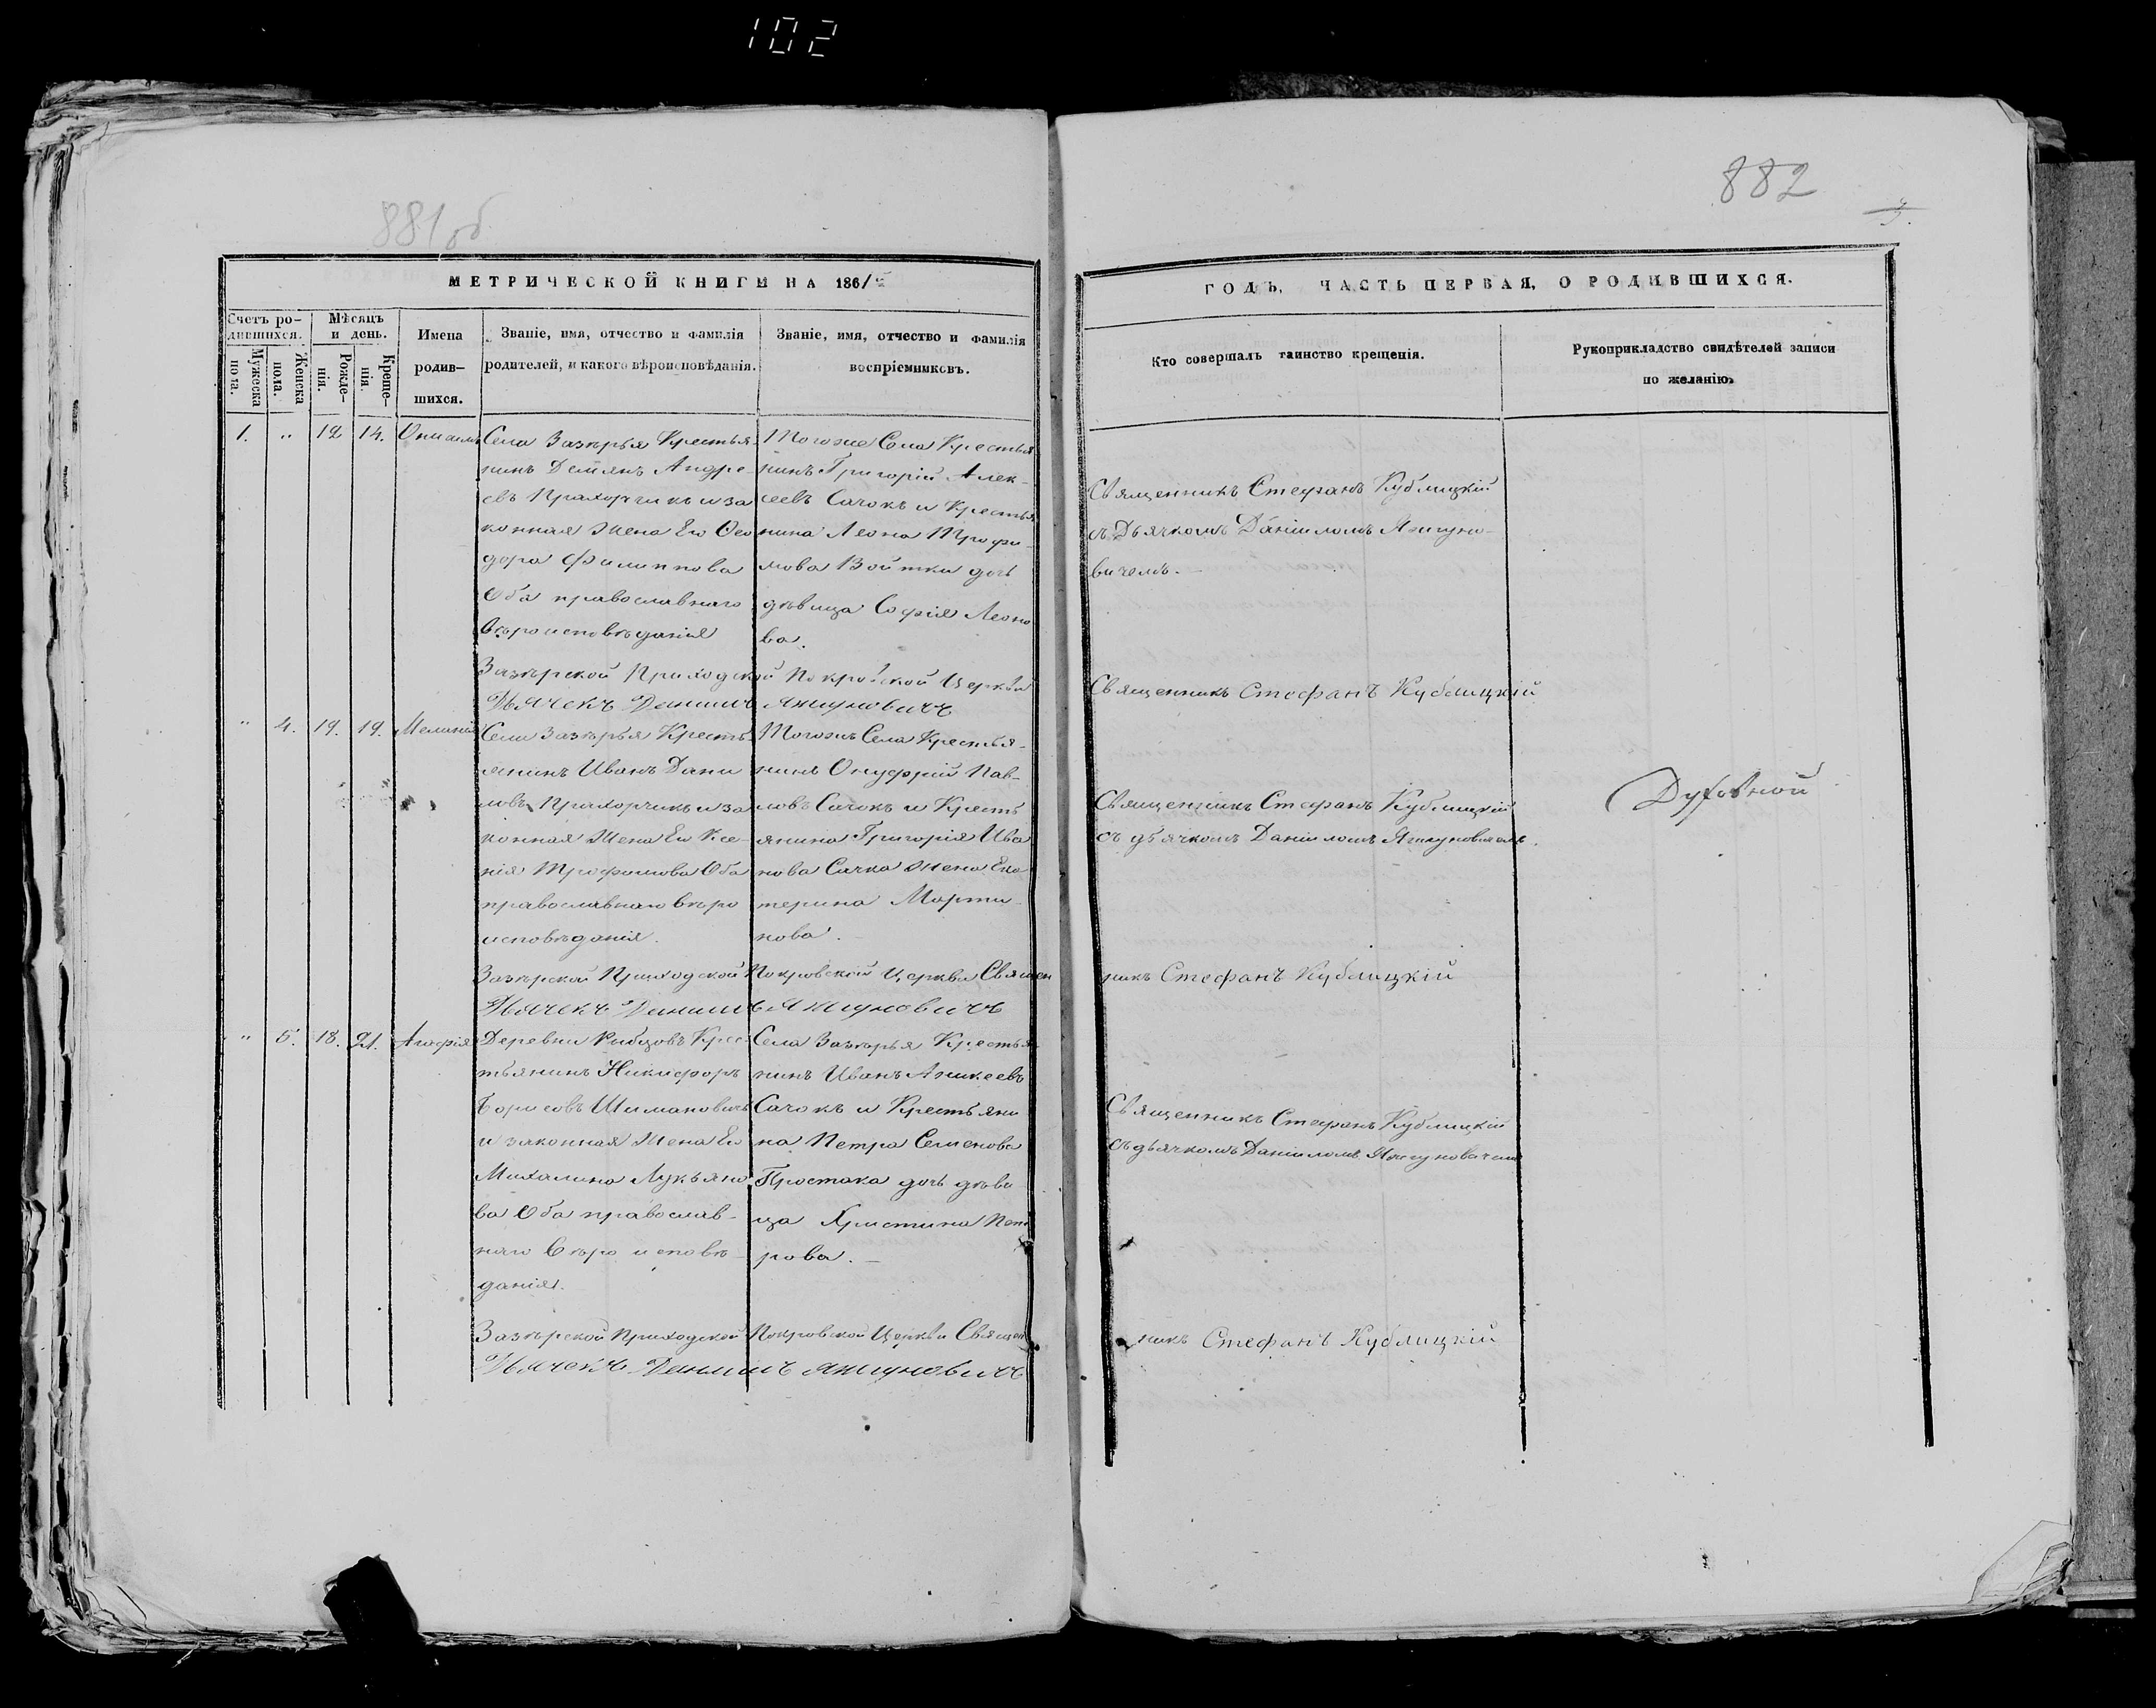 102
881 об
882
3.
МЕТРИЧЕСКОЙ КНИГИ НА 186/
ГОДЪ, ЧАСТЬ ПЕРВАЯ, О РОДИВШИХСЯ.
Счетъ ро-
дившихся.
Мужеска
пола.
Женска
пола.
Мѣсяцъ
и день.
Рожде-
нія.
Креще-
нія.
Имена
родив-
шихся.
Званіе, имя, отчество и фамилія
родителей, и какого вѣроисповѣданія.
Званіе, имя, отчество и фамилія
воспріемниковъ.
Кто совершалъ таинство крещенія.
Рукоприкладство свидѣтелей записи
по желанію.
1. „ 12 14.
Села Зазѣрья Крестья-
нинъ Демянъ Андре-
евъ Прахорчикъ и за
конная Жена Его Ѳео
дора Филиппова
Оба православнаго
Вѣроисповѣданія
Тогоже Села Крестья
нинъ Григорій Алек-
сеевъ Сачокъ и Крестья
нина Леона Трофи-
мова Войтки дочь
дѣвица Софія Леоно
ва.
Священникъ Стефанъ Кублицкій
съ Дьячкомъ Даніиломъ Якцуно-
вичемъ.-
Зазѣрской Приходской Покровской Церкви
Священникъ Стефанъ Кублицкій
Дьячекъ Даниилъ Якцуновичъ
„ 4. 19. 19. Меланія
Села Зазѣрья Кресть
янинъ Иванъ Дани
ловъ Прахорчикъ и за
конная Жена Его Ксе-
нія Трофимова Оба
православнаго вѣро
исповѣданія.
Тогожъ Села Крестья-
нинъ Онуфрій Пав-
ловъ Сачокъ и Кресть
янина Григорія Ива
нова Сачка Жена Ека
терина Марти-
нова.
Священникъ Стефанъ Кублицкій
съ дьячкомъ Даніиломъ Якцуновичемъ.
Духовной
Зазѣрской Приходской Покровской Церкви Священ
никъ Стефанъ Кублицкій
Дьячекъ Даниилъ Якцуновичъ
„ 5. 18. 21. Агафія
Деревни Крес-
тьянинъ Никифоръ
Борисовъ Шимановичъ
и законная Жена Его
Михалина Лукьяно
ва Оба православ-
наго Вѣро исповѣ-
данія.
Села Зазѣрья Крестья
нинъ Иванъ Аникеевъ
Сачокъ и Крестьяни
на Петра Семенова
Простака дочь дѣви
ца Христина Пет
рова.-
Священникъ Стефанъ Кублицкій
съ дьячкомъ Даніиломъ Якцуновичемъ
Зазѣрской Приходской Покровской Церкви Священ
никъ Стефанъ Кублицкій
Дьячекъ Даниилъ Якцуновичъ